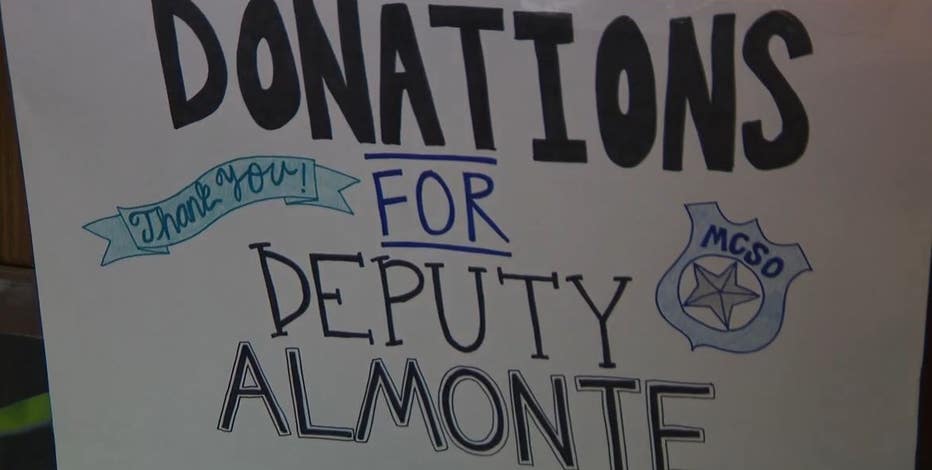 DONATIONS
Thank you!
FOR
MCSO
DEPUTY
ALMONTE